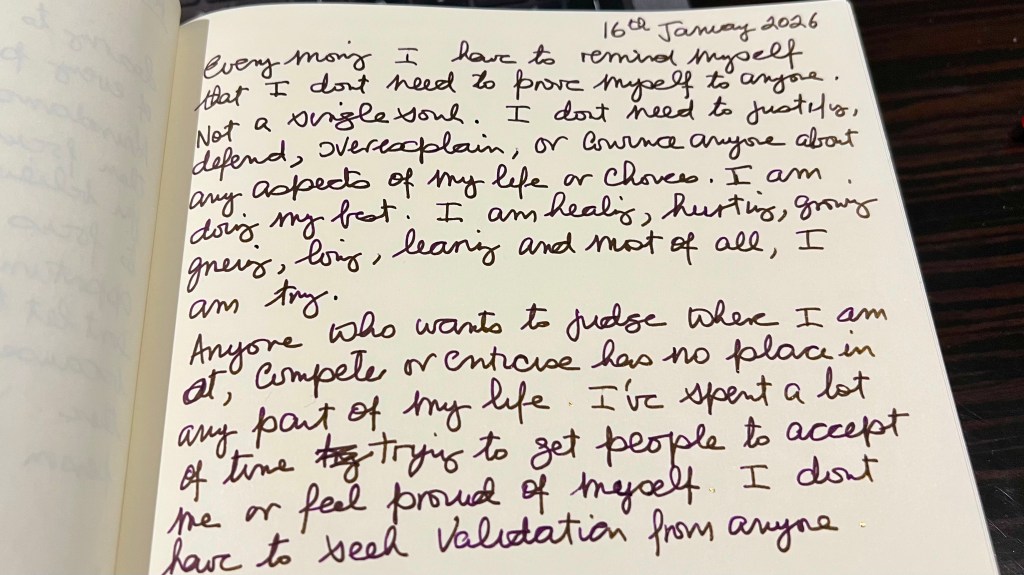 16th January 2026
Every morning I have to remind myself
that I dont need to prove myself to anyone.
Not a single soul. I dont need to justify,
defend, overexplain, or convince anyone about
any aspects of my life or choices. I am
doing my best. I am healing, hurting, growing
grieving, loving, learning and most of all, I
am trying.
Anyone who wants to judge where I am
at, compete or criticise has no place in
any part of my life. I've spent a lot
of time trying to get people to accept
me or feel proud of myself. I dont
have to seek validation from anyone